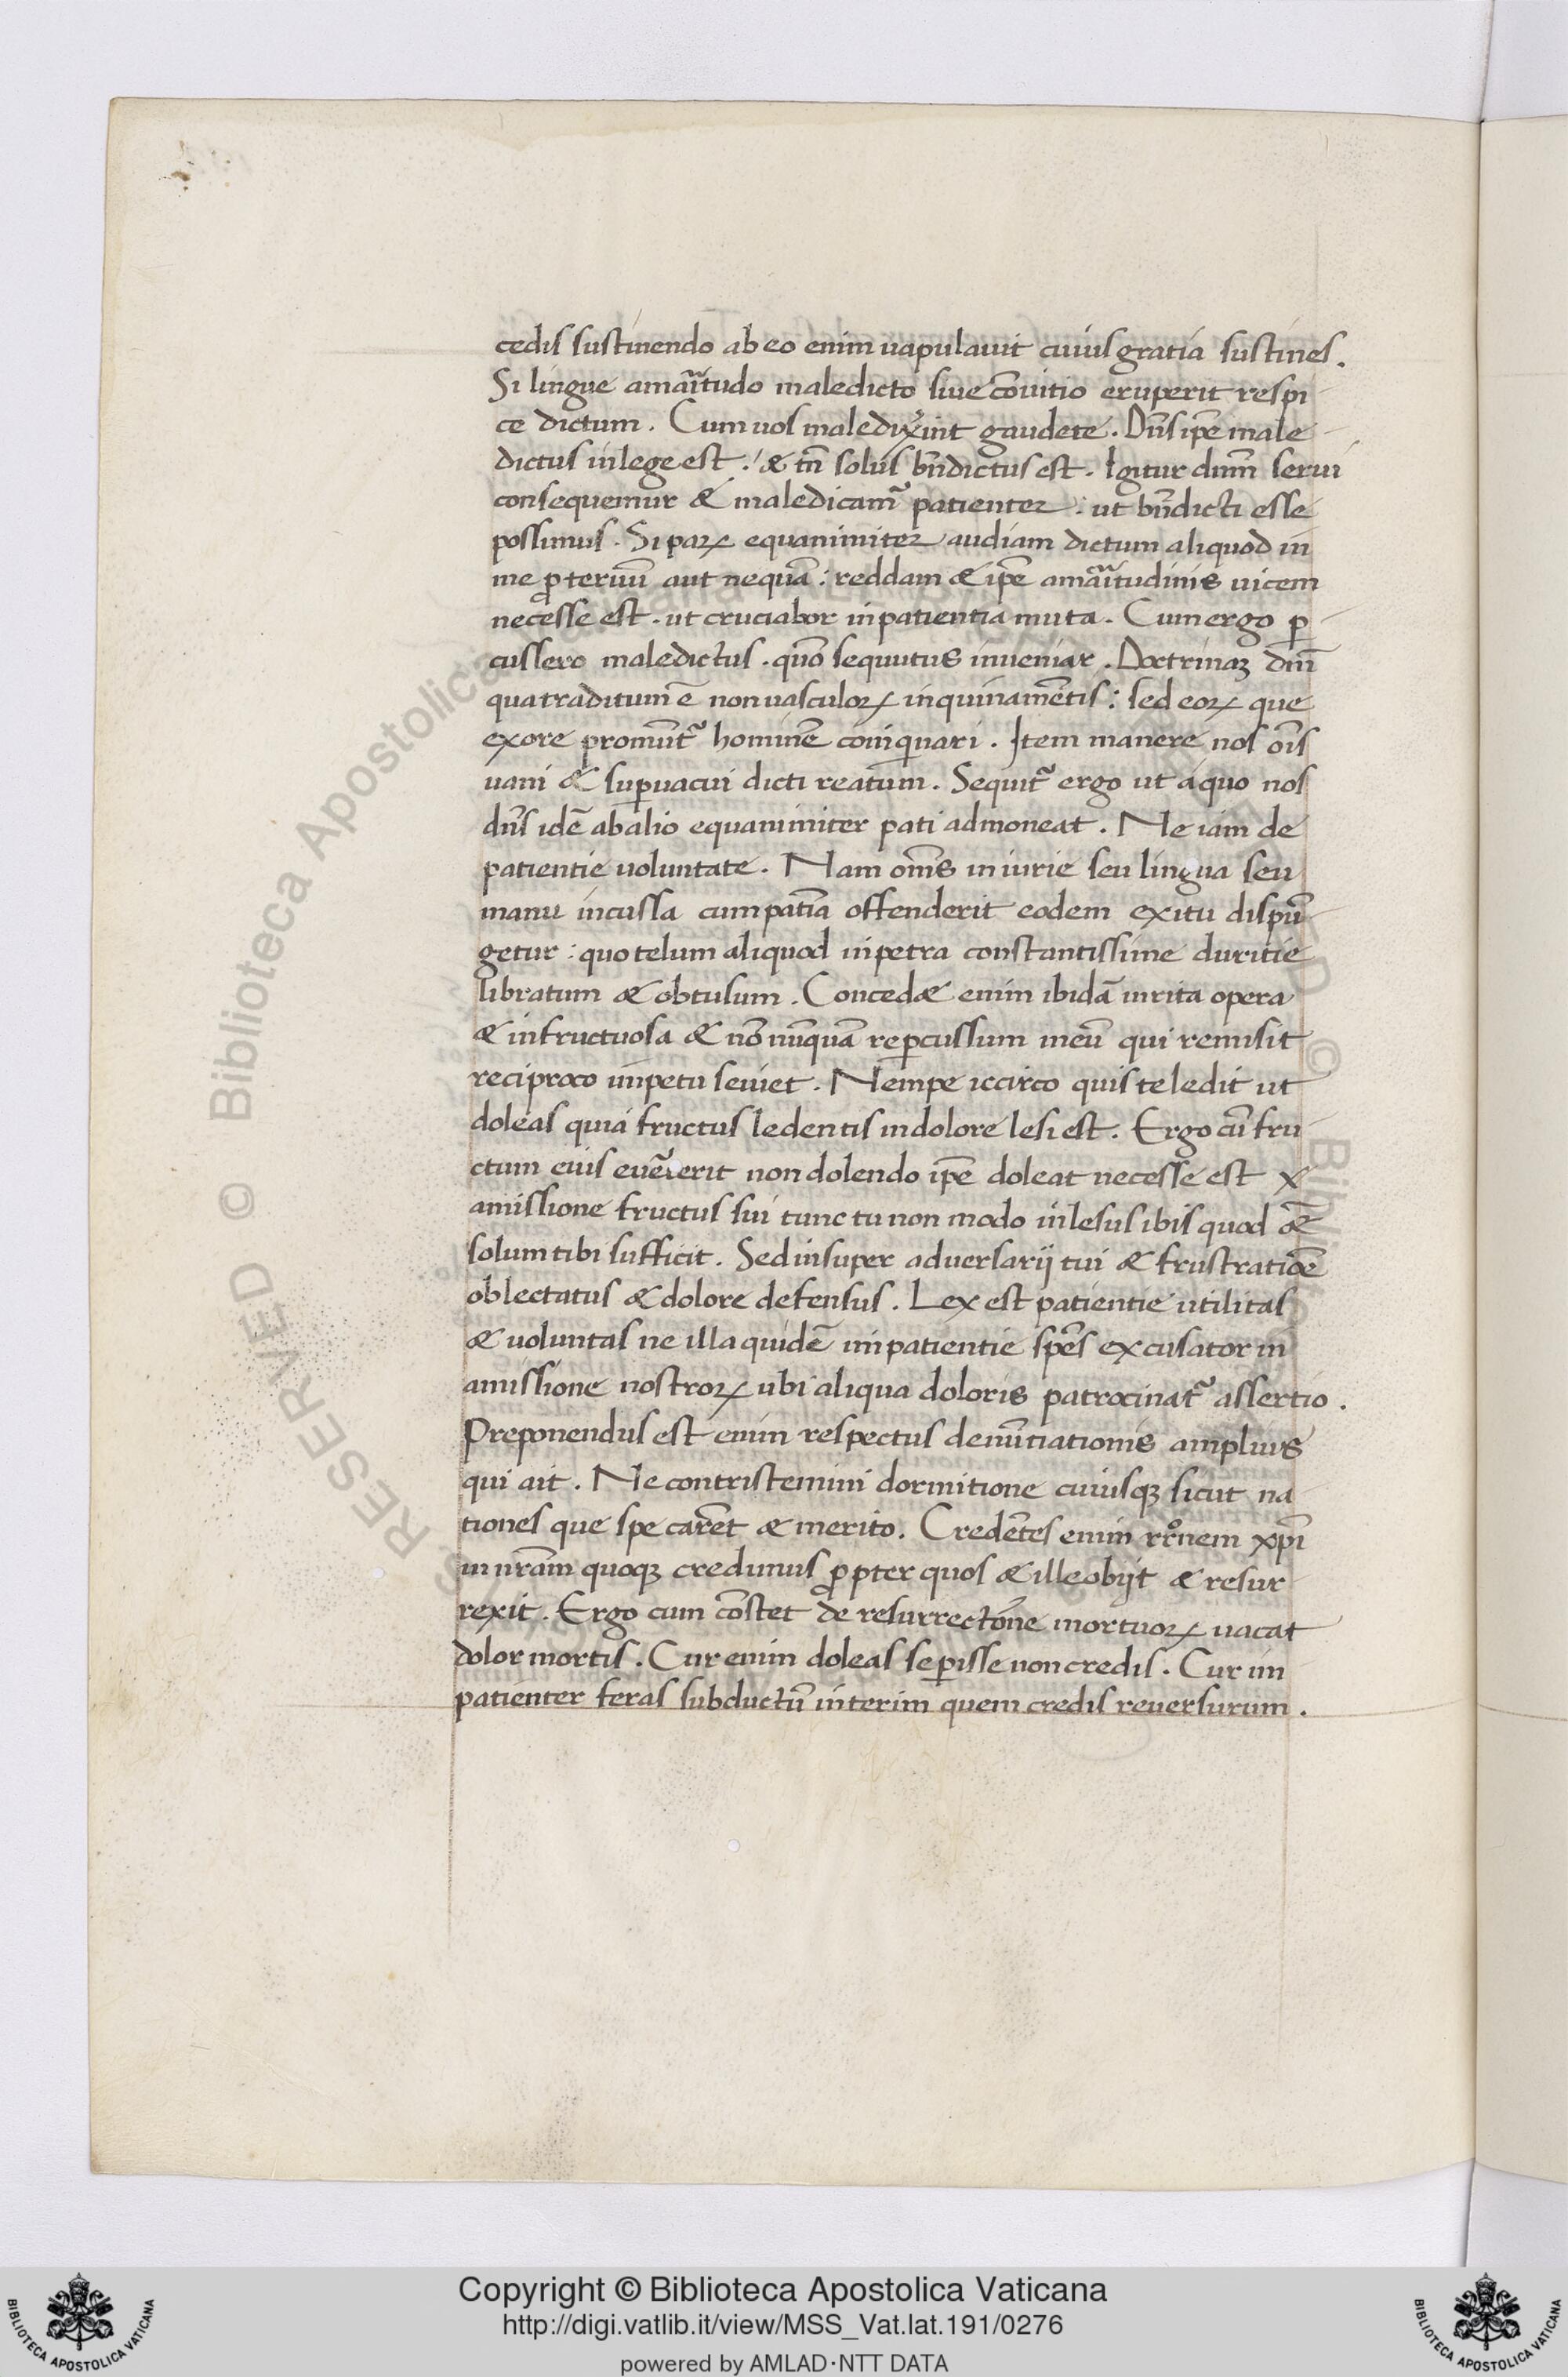 cedis sustinendo ab eo enim uapulauit cuius gratia sustines.
Si lingue amãitudo maledicto siue cõuitio eruperit respi
ce dictum. Cum uos maledix̃int gaudete. Dñs ip̃e male
dictus in lege est. & tñ solus bñdictus est. Igitur dñm serui
consequemur & maledicam̃ patienter: ut bñdicti esse
possimus. Si paꝝ equanimiter audiam dictum aliquod in
me ꝓteruũ aut nequã: reddam & ip̃e amãitudinis uicem
necesse est. ut cruciabor inpatientia muta. Cum ergo ꝑ
cussero maledictus. quõ sequutus inueniar. Doctrinaꝫ dñi
qua traditum ẽ non uasculoꝝ inquinamẽtis: sed eoꝝ que
ex ore promũt̃ hominẽ coinqinari. Item manere nos oĩs
uani & suꝑuacui dicti reatum. Sequit̃ ergo ut a quo nos
dñs idẽ ab alio equanimiter pati admoneat. Ne iam de
patientie uoluntate. Nam om̃s iniurie seu lingua seu
manu incussa cum patĩa offenderit eodem exitu dispũ
getur: quo telum aliquod in petra constantissime duritie
libratum & obtusum. Conced& enim ibidã inrita opera
& infructuosa & nõ nũquã reꝑcussum meũ qui remisit
reciproco impetu seuiet. Nempe iccirco quis te ledit ut
doleas quia fructus ledentis in dolore lesi est. Ergo cũ fru
ctum eius euẽterit non dolendo ip̃e doleat necesse est
amissione fructus sui tunc tu non modo inlesus ibis quod
solum tibi sufficit. Sed insuper aduersarij tui & frustratiõe
oblectatus & dolore defensus. Lex est patientie utilitas
& uoluntas ne illa quidẽ impatientie spẽs excusator in
amissione nostroꝝ ubi aliqua doloris patrocinat̃ assertio.
Preponendus est enim respectus denũtiationis amplius
qui ait. Ne contristemini dormitione cuiusqꝫ sicut na
tiones que spe carẽt & merito. Credẽtes enim rr̃onem xp̃i
in nr̃am quoqꝫ credimus ꝓpter quos & ille obijt & resur
rexit. Ergo cum cõstet de resurrectõne mortuoꝝ uacat
dolor mortis. Cur enim doleas si ꝑisse non credis. Cur im
patienter feras subductũ interim quem credis reuersurum.
© Biblioteca Apostolica
RESERVED
Copyright © Biblioteca Apostolica Vaticana
http://digi.vatlib.it/view/MSS_Vat.lat.191/0276
powered by AMLAD·NTT DATA
BIBLIOTECA APOSTOLICA VATICANA
BIBLIOTECA APOSTOLICA VATICANA